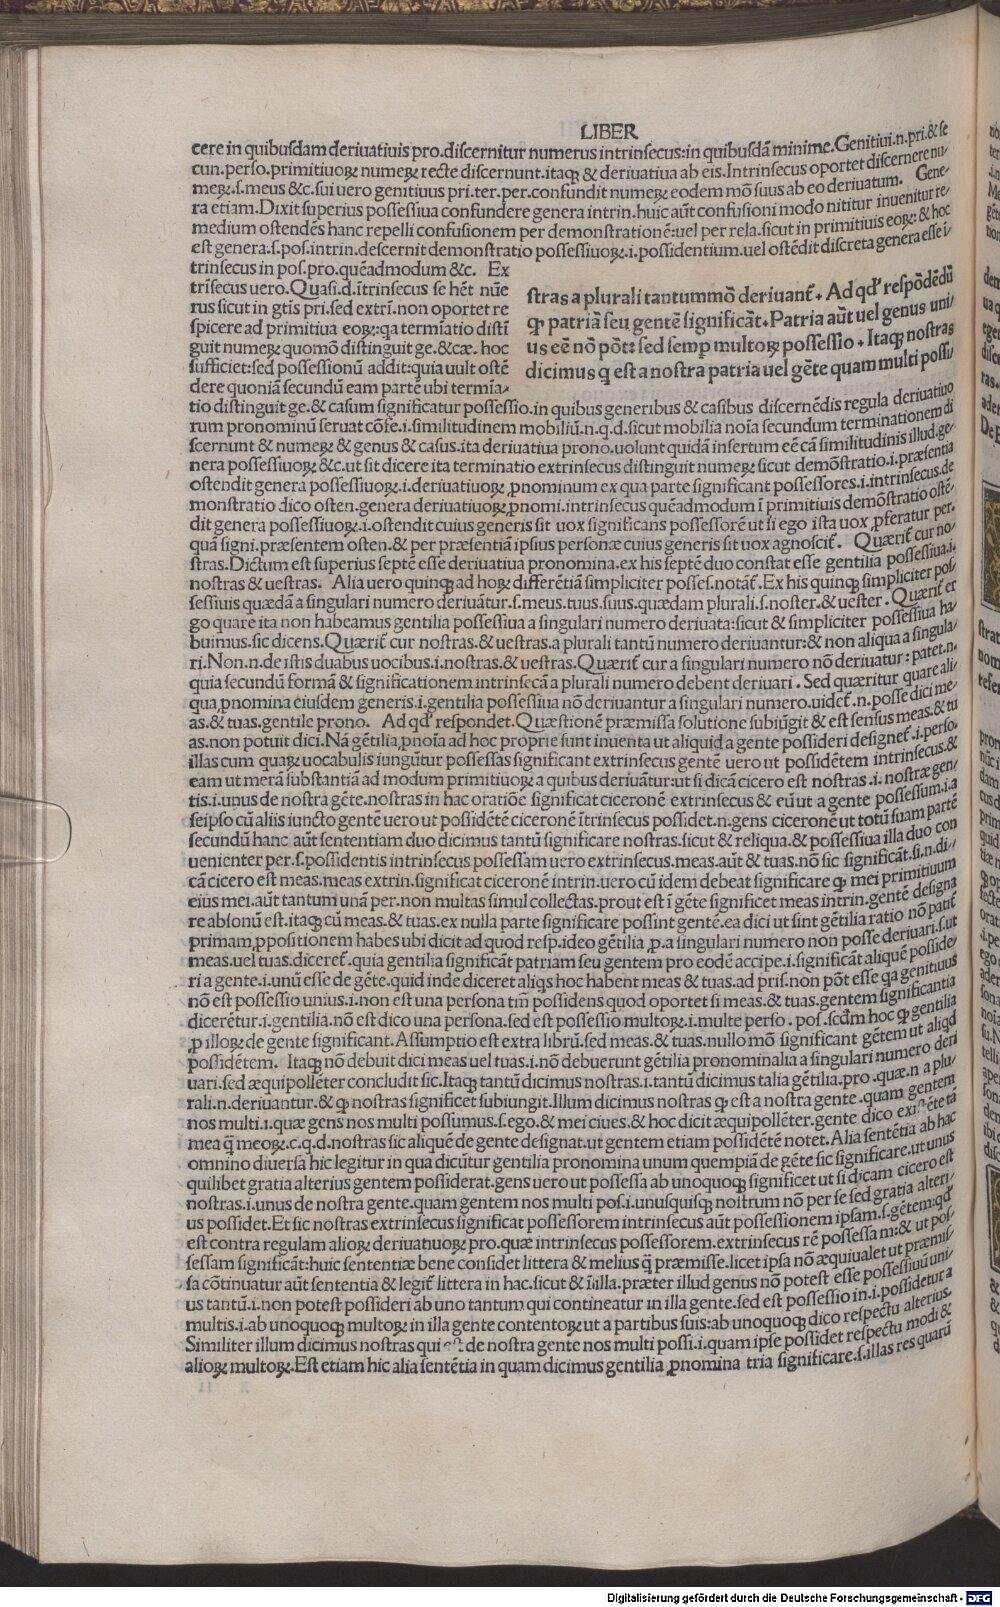 LIBER
cere in quibusdam deriuatiuis pro.discernitur numerus intrinsecus:in quibusdã minime.Genitiui.n.pri.& se
cun.perso.primitiuoꝝ numeꝝ recte discernunt.itaqꝫ & deriuatiua ab eis.Intrinsecus oportet discernere nu
meꝝ.s.meus &c.sui uero genitiuus pri.ter.per.confundit numeꝝ eodem mõ suus ab eo deriuatum. Gene-
ra etiam.Dixit superius possessiua confundere genera intrin.huic aũt confusioni modo nititur inuenitur re/
medium ostendẽs hanc repelli confusionem per demonstrationẽ:uel per rela.sicut in primitiuis eoꝝ:& hoc
est genera.s.pos.intrin.descernit demonstratio possessiuoꝝ.i.possidentium.uel ostẽdit discreta genera esse i/
trinsecus in pos.pro.quẽadmodum &c. Ex
trĩsecus uero.Quasi.d.ĩtrinsecus se hẽt nũe
rus sicut in gtĩs pri.sed extrĩ.non oportet re
spicere ad primitiua eoꝝ:qa termĩatio distĩ
guit numeꝝ quomõ distinguit ge.&cæ. hoc
sufficiet:sed possessionũ addit:quia uult ostẽ
dere quoniã secundũ eam partẽ ubi termĩa/
stras a plurali tantummõ deriuanť. Ad qď respõdẽdũ
qꝫ patriã seu gentẽ significãt.Patria aũt uel genus uni/
us eẽ nõ põt: sed semp multoꝝ possessio. Itaqꝫ nostras
dicimus q est a nostra patria uel gẽte quam multi possi/
tio distinguit ge.& casum significatur possessio.in quibus generibus & casibus discernẽdis regula deriuatiuo
rum pronominũ seruat cõfe.i.similitudinem mobiliũ.n.q.d.sicut mobilia noĩa secundum terminationem di
scernunt & numeꝝ & genus & casus.ita deriuatiua prono.uolunt quidã insertum eẽ cã similitudinis illud.ge-
nera possessiuoꝝ &c.ut sit dicere ita terminatio extrinsecus distinguit numeꝝ sicut demõstratio.i.præsentia
ostendit genera possessiuoꝝ.i.deriuatiuoꝝ ꝓnominum ex qua parte significant possessores.i.intrinsecus.de
monstratio dico osten.genera deriuatiuoꝝ ꝓnomi.intrinsecus quẽadmodum ĩ primitiuis demõstratio ostẽ-
dit genera possessiuoꝝ.i.ostendit cuius generis sit uox significans possessorẽ ut si ego ista uox ꝓferatur per-
quã signi.præsentem osten.& per præsentiã ipsius personæ cuius generis sit uox agnosciť. Quæriť cur no/
stras.Dictum est superius septẽ esse deriuatiua pronomina.ex his septẽ duo constat esse gentilia possessiua.i.
nostras & uestras. Alia uero quinqꝫ ad hoꝝ differẽtiã simpliciter posses.notãť.Ex his quinqꝫ simpliciter pos/
sessiuis quædã a singulari numero deriuãtur.s.meus.tuus.suus.quædam plurali.s.noster.& uester. Quæriť er
go quare ita non habeamus gentilia possessiua a singulari numero deriuata:sicut & simpliciter possessiua ha/
buimus.sic dicens.Quæriť cur nostras.& uestras.a plurali tantũ numero deriuantur:& non aliqua a singula/
ri.Non.n.de istis duabus uocibus.i.nostras.& uestras.Quæriť cur a singulari numero nõ deriuatur: patet.n.
quia secundũ formã & significationem intrinsecã a plurali numero debent deriuari. Sed quæritur quare ali/
qua ꝓnomina eiusdem generis.i.gentilia possessiua nõ deriuantur a singulari numero.uideť.n.posse dici me/
as.& tuas.gentile prono. Ad qď respondet.Quæstionẽ præmissa solutione subiũgit & est sensus meas.& tu
as.non potuit dici.Nã gẽtilia ꝓnoĩa ad hoc proprie sunt inuenta ut aliquid a gente possideri designeť.i.perso.
illas cum quaꝝ uocabulis iungũtur possessas significant extrinsecus gentẽ uero ut possidẽtem intrinsecus.&
eam ut merã substantiã ad modum primitiuoꝝ a quibus deriuãtur.ut si dicã cicero est nostras.i.nostræ gen/
tis.i.unus de nostra gẽte.nostras in hac oratiõe significat ciceronẽ extrinsecus & eũ ut a gente possessum.i.a
seipso cũ aliis iuncto gentẽ uero ut possidẽtẽ ciceronẽ ĩtrinsecus possidet.n.gens ciceronẽ ut totũ suam partẽ
secundũ hanc aũt sententiam duo dicimus tantũ significare nostras.sicut & reliqua.& possessiua illa duo con
uenienter per.s.possidentis intrinsecus possessam uero extrinsecus.meas.aũt & tuas.nõ sic significãt.si.n.di/
cã cicero est meas.meas extrin.significat ciceronẽ intrin.uero cũ idem debeat significare qꝫ mei primitiuum
eius mei.aũt tantum unã per.non multas simul collectas.prout est ĩ gẽte significet meas intrin.gentẽ designa
re absonũ est.itaqꝫ cũ meas.& tuas.ex nulla parte significare possint gentẽ.ea dici ut sint gẽtilia ratio nõ patiť
primam ꝓpositionem habes ubi dicit ad quod resp.ideo gẽtilia ꝓ.a singulari numero non posse deriuari.s.ut
meas.uel tuas.dicereť.quia gentilia significãt patriam seu gentem pro eodẽ accipe.i.significãt aliquẽ posside/
ri a gente.i.unũ esse de gẽte.quid inde diceret aliqs hoc habent meas & tuas.ad pris.non põt esse qa genituus
nõ est possessio unius.i.non est una persona tm̃ possidens quod oportet si meas.& tuas.gentem significantia
dicerẽtur.i.gentilia.nõ est dico una persona.sed est possessio multoꝝ.i.multe perso. pos.scďm hoc qꝫ gentilia
ꝓ illoꝝ de gente significant.Assumptio est extra librũ.sed meas.& tuas.nullo mõ significant gẽtem ut aliqd
possidẽtem. Itaqꝫ nõ debuit dici meas uel tuas.i.nõ debuerunt gẽtilia pronominalia a singulari numero deri
uari.sed æquipollẽter concludit sic.Itaqꝫ tantũ dicimus nostras.i.tantũ dicimus talia gẽtilia.pro.quæ.n a plu/
rali.n.deriuantur.& qꝫ nostras significet subiungit.Illum dicimus nostras qꝫ est a nostra gente.quam gentem
nos multi.i.quæ gens nos multi possumus.s.ego.& mei ciues.& hoc dicit æquipollẽter.gente dico tã
mea q̃ meoꝝ.c.q.d.nostras sic aliquẽ de gente designat.ut gentem etiam possidẽtẽ notet.Alia sentẽtia ab hac
omnino diuersa hic legitur in qua dicũtur gentilia pronomina unum quempiã de gẽte sic significare.ut unus
quilibet gratia alterius gentem possiderat.gens uero ut possessa ab unoquoqꝫ significet ut si dicam cicero est
nostras.i.unus de nostra gente.quam gentem nos multi pos.i.unusquisqꝫ nostrum nõ per se sed gratia alteri/
us possidet.Et sic nostras extrinsecus significat possessorem intrinsecus aũt possessionem ipsam.s.gẽtem:qď
est contra regulam alioꝝ deriuatiuoꝝ pro.quæ intrinsecus possessorem.extrinsecus rẽ possessa m:& ut pos-
sessam significãt:huic sententiæ bene considet littera & melius q̃ præmisse.licet ipsa nõ æquiualet ut præmis/
sa cõtinuatur aũt sententia & legiť littera in hac.sicut & ũilla.præter illud genus nõ potest esse possessiuũ uni/
us tantũ.i.non potest possideri ab uno tantum qui contineatur in illa gente.sed est possessio in.i.possidetur a
multis.i.ab unoquoqꝫ multoꝝ in illa gente contentoꝝ ut a partibus suis:ab unoquoqꝫ dico respectu alterius.
Similiter illum dicimus nostras qui est de nostra gente nos multi possi.i.quam ipse possidet respectu modi &
alioꝝ multoꝝ.Est etiam hic alia sentẽtia in quam dicimus gentilia ꝓnomina tria significare.s.illas res quarũ
Digitalisierung gefördert durch die Deutsche Forschungsgemeinschaft - DFG